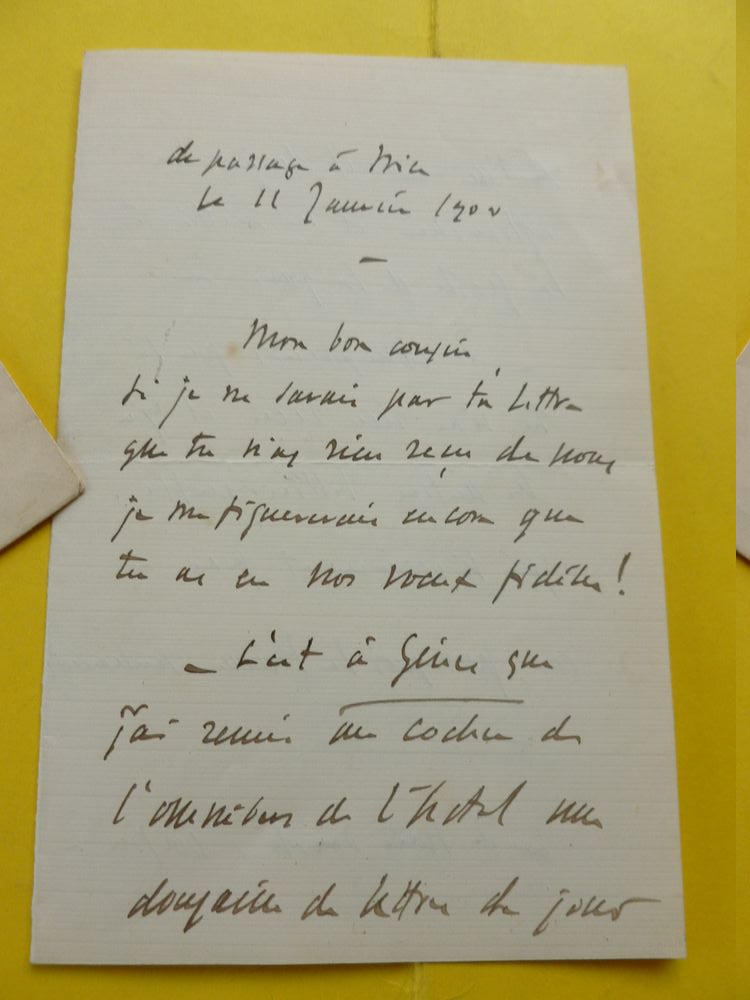 de passage à Nice
le 11 Janvier 1900
—
Mon bon cousin,
Si je ne savais par ta lettre
que tu n'as rien reçu de nous
je me figurerais encore que
tu as eu nos vœux fidèles!
— C'est à Gênes que
j'ai remis au cocher de
l'omnibus de l'hotel une
douzaine de lettres de jour